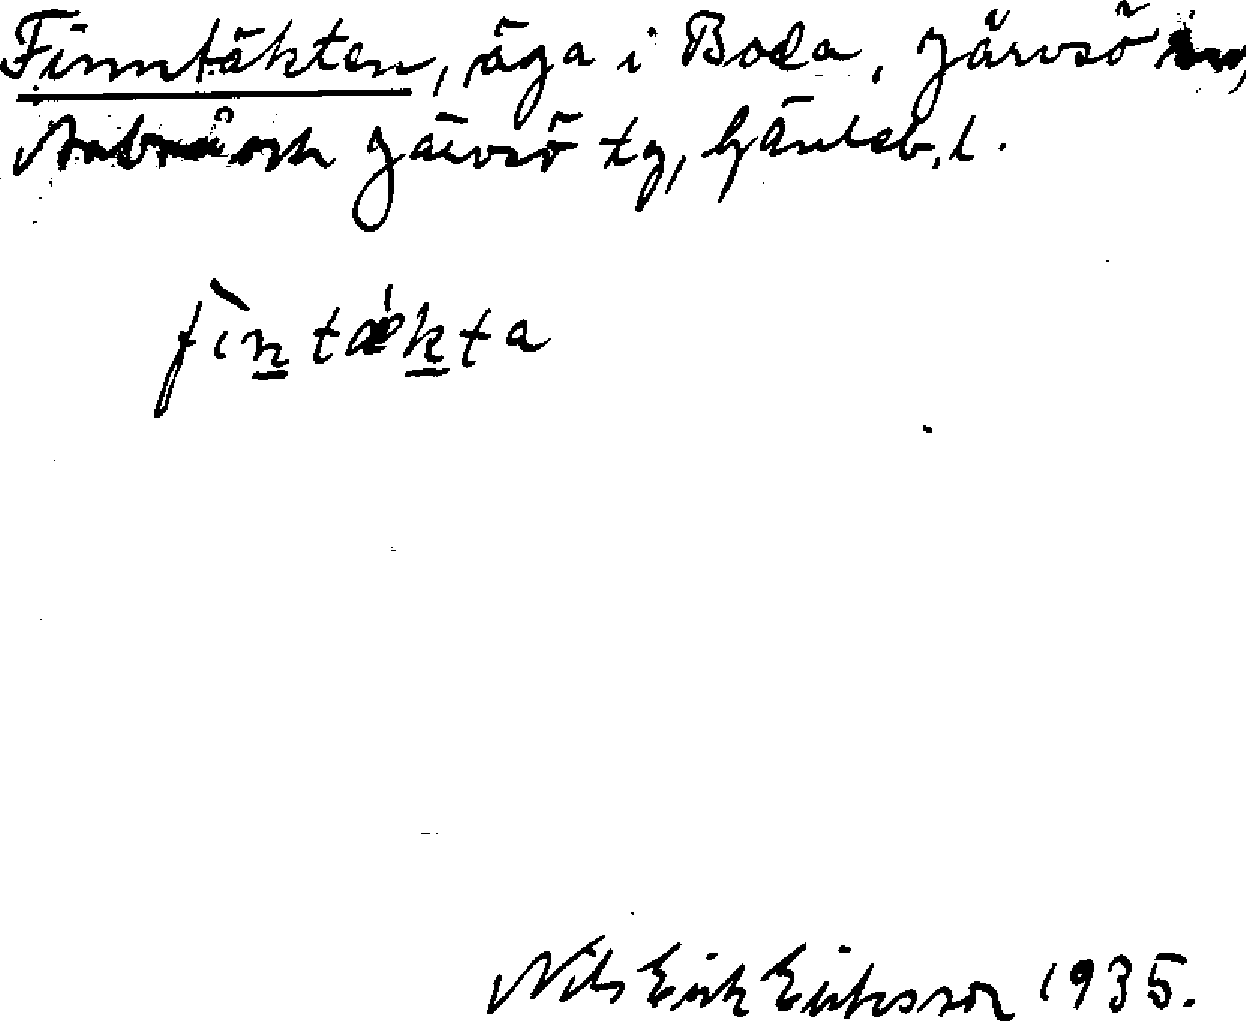 Finntäkten, äga i Bola, Järvsö sn,
Arbrå och Järvsö tg, Gävleb. l.
fìn tǽkta
Nils Erik Eriksson 1935.